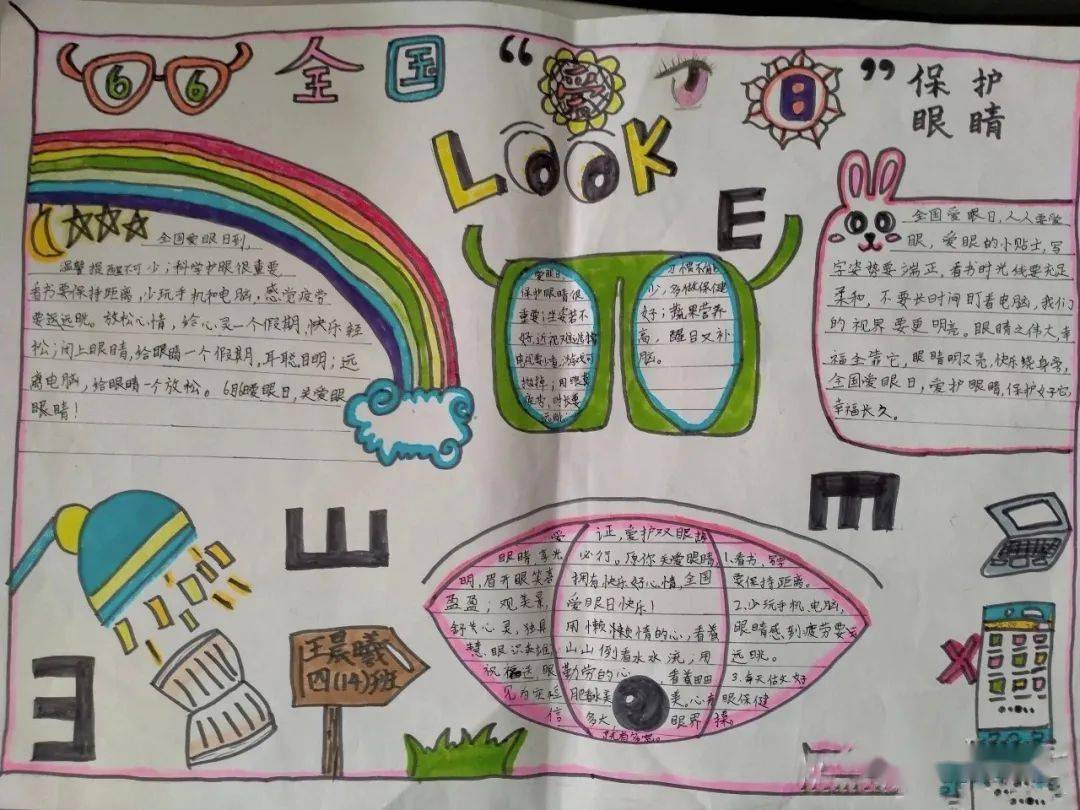 66 全国“爱 日”保护
眼睛
LOOK
E
全国爱眼日到,
温馨提醒不可少;科学护眼很重要
看书要保持距离,少玩手机和电脑,感觉疲劳
要远远眺。放松心情,给心灵一个假期,快乐轻
松;闭上眼睛,给眼睛一个假期,耳聪目明;远
离电脑,给眼睛一个放松。6月6爱眼日,关爱眼
眼睛!
爱眼日
保护眼睛很
重要;坐姿若不
好,近视
电视要少看,游戏可
抛掉;用眼要
远眺。
少,多做保健
好;蔬果营养
高,醒目又补
脑。
全国爱眼日,人人要爱
眼,爱眼的小贴士,写
字姿势要端正,看书时光线要充足
柔和,不要长时间盯着电脑,我们
的视界要更明亮。眼睛之伟大,幸
福全靠它,眼睛明又亮,快乐绕身旁,
全国爱眼日,爱护眼睛,保护好它,
幸福长久。
E
E
E
王晨曦
四(14)班
爱
眼睛享光
明,眉开眼笑喜
盈盈;观美景,
舒失心灵,独具
慧眼识
祝福送眼
见为实
信
证,爱护双眼
必行。愿你关爱眼睛,
拥有快乐好心情,全国
爱眼日快乐!
用懒懒情的心,看着
山山倒着水水流;用
勤劳的心,看着田田
肥着水美美。心有
多大,眼界
1.看书、写字
要保持距离。
2.少玩手机、电脑,
眼睛感到疲劳要
远眺。
3.每天估火好
眼保健
操。